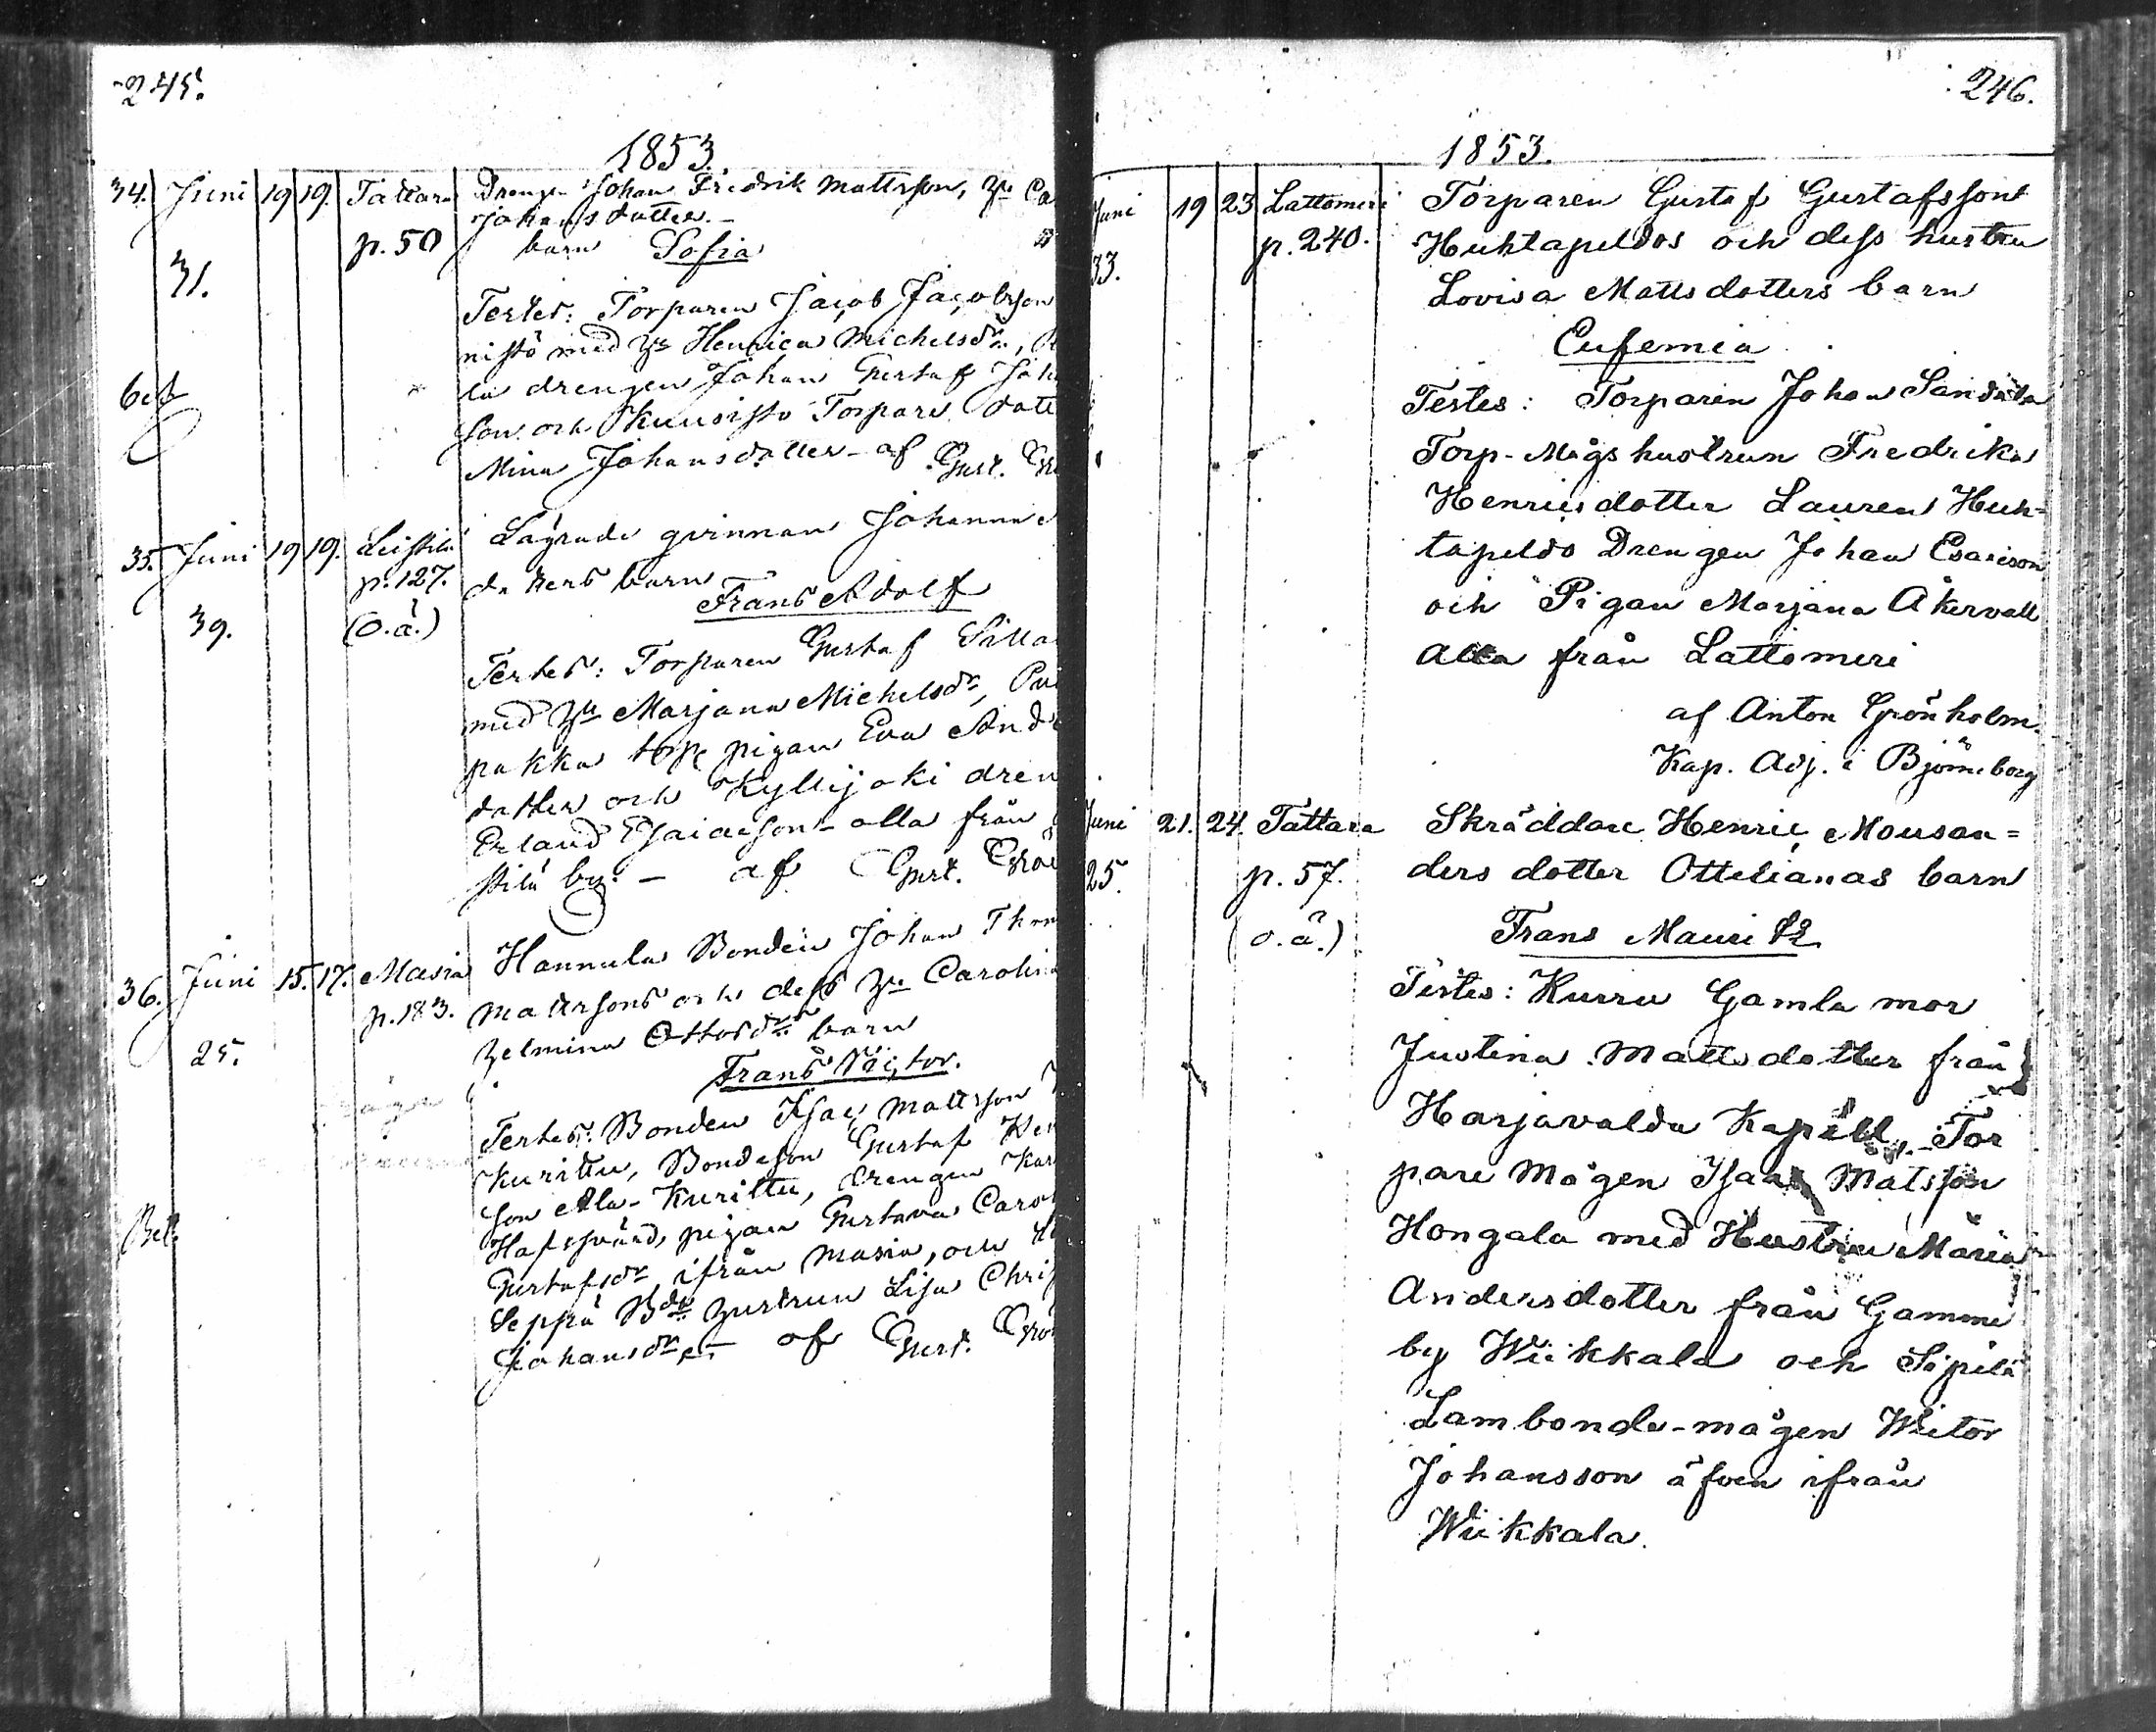 245.
1853.
34. Juni 19 19. Tattara Drengen Johan Fredrik Mattsson, Hu Ca
Johansdotter.-
p. 50 barn Sofia
31.
Testes: Torparen Jacob Jacobsson
nistö med Hu Henrica Michelsdr,
bet la drengen Johan Gustaf Joh
son och Kuusisto Torpare dott
Mina Johansdotter - af Gust. Grö
35. Juni 19 19. Leistilä Lägrade qvinnan Johanna
p. 127. barn
Frans Adolf
39. (o.ä.)
Testes: Torparen Gustaf
med Hu Marjana Michelsdr,
pakka torp pigan Eva And
dotter och Kyllijoki dren
Erland Esaiasson - alla från
stilä by. - af Gust. Grön
36. Juni 15. 17. Masia Hannula Bonden Johan Thom
p. 183. Mattssons och dess Hu Carolina
25. barn
Frans Victor.
Testes: Bonden Isac Mattsson
Kurittu, Bondeson Gustaf Hen
son Ala-Kurittu, drengen Kar
Bet. pigan Gustava Carol
Gustafsdr ifrån Masia, och
Seppä Bde hustrun Lisa Chris
Johansdr - af Gust. Grön
246.
1853.
Juni 19 23 Lattomeri Torparen Gustaf Gustafssons
p. 240. Huhtapeldos och dess hustru
33. Lovisa Mattsdotters barn
Eufemia
Testes: Torparen Johan
Torp-Mågshustrun Fredrika
Henricsdotter Lauren Huh-
tapeldo Drengen Johan Esaison
och Pigan Marjana Åkervall
Alla från Lattomeri
af Anton Grönholm.
Kap. Adj. i Björneborg
Juni 21. 24 Tattara Skräddare Henric Mousan=
25. p. 57. ders dotter Ottelianas barn
(o.ä.) Frans Mauritz
Testes: Kurru Gamla mor
Justina Mattsdotter från
Harjavalda Kapell, Tor
pare Mågen Isaak Matsson
Hongala med Hustru Maria
Andersdotter från Gamme
by Wiikkala och Sipilä
Lambonde-mågen Wictor
Johansson äfven ifrån
Wiikkala.